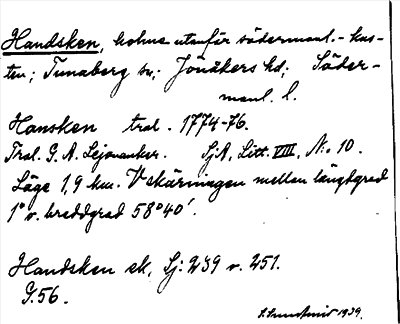 Handsken, holme utanför södermanl.-kus-
ten; Tunaberg sn; Jönåkers hd; Söder-
manl. l.
Hansken tral. 1774-76.
Tral. G. A. Lejonanker. SjA, Litt. VIII, No 10.
Läge 1,9 km. V skärningen mellan längdgrad
1° v. breddgrad 58°40'.
Handsken sk, Sj: 239 v. 251.
G.56.
1939.